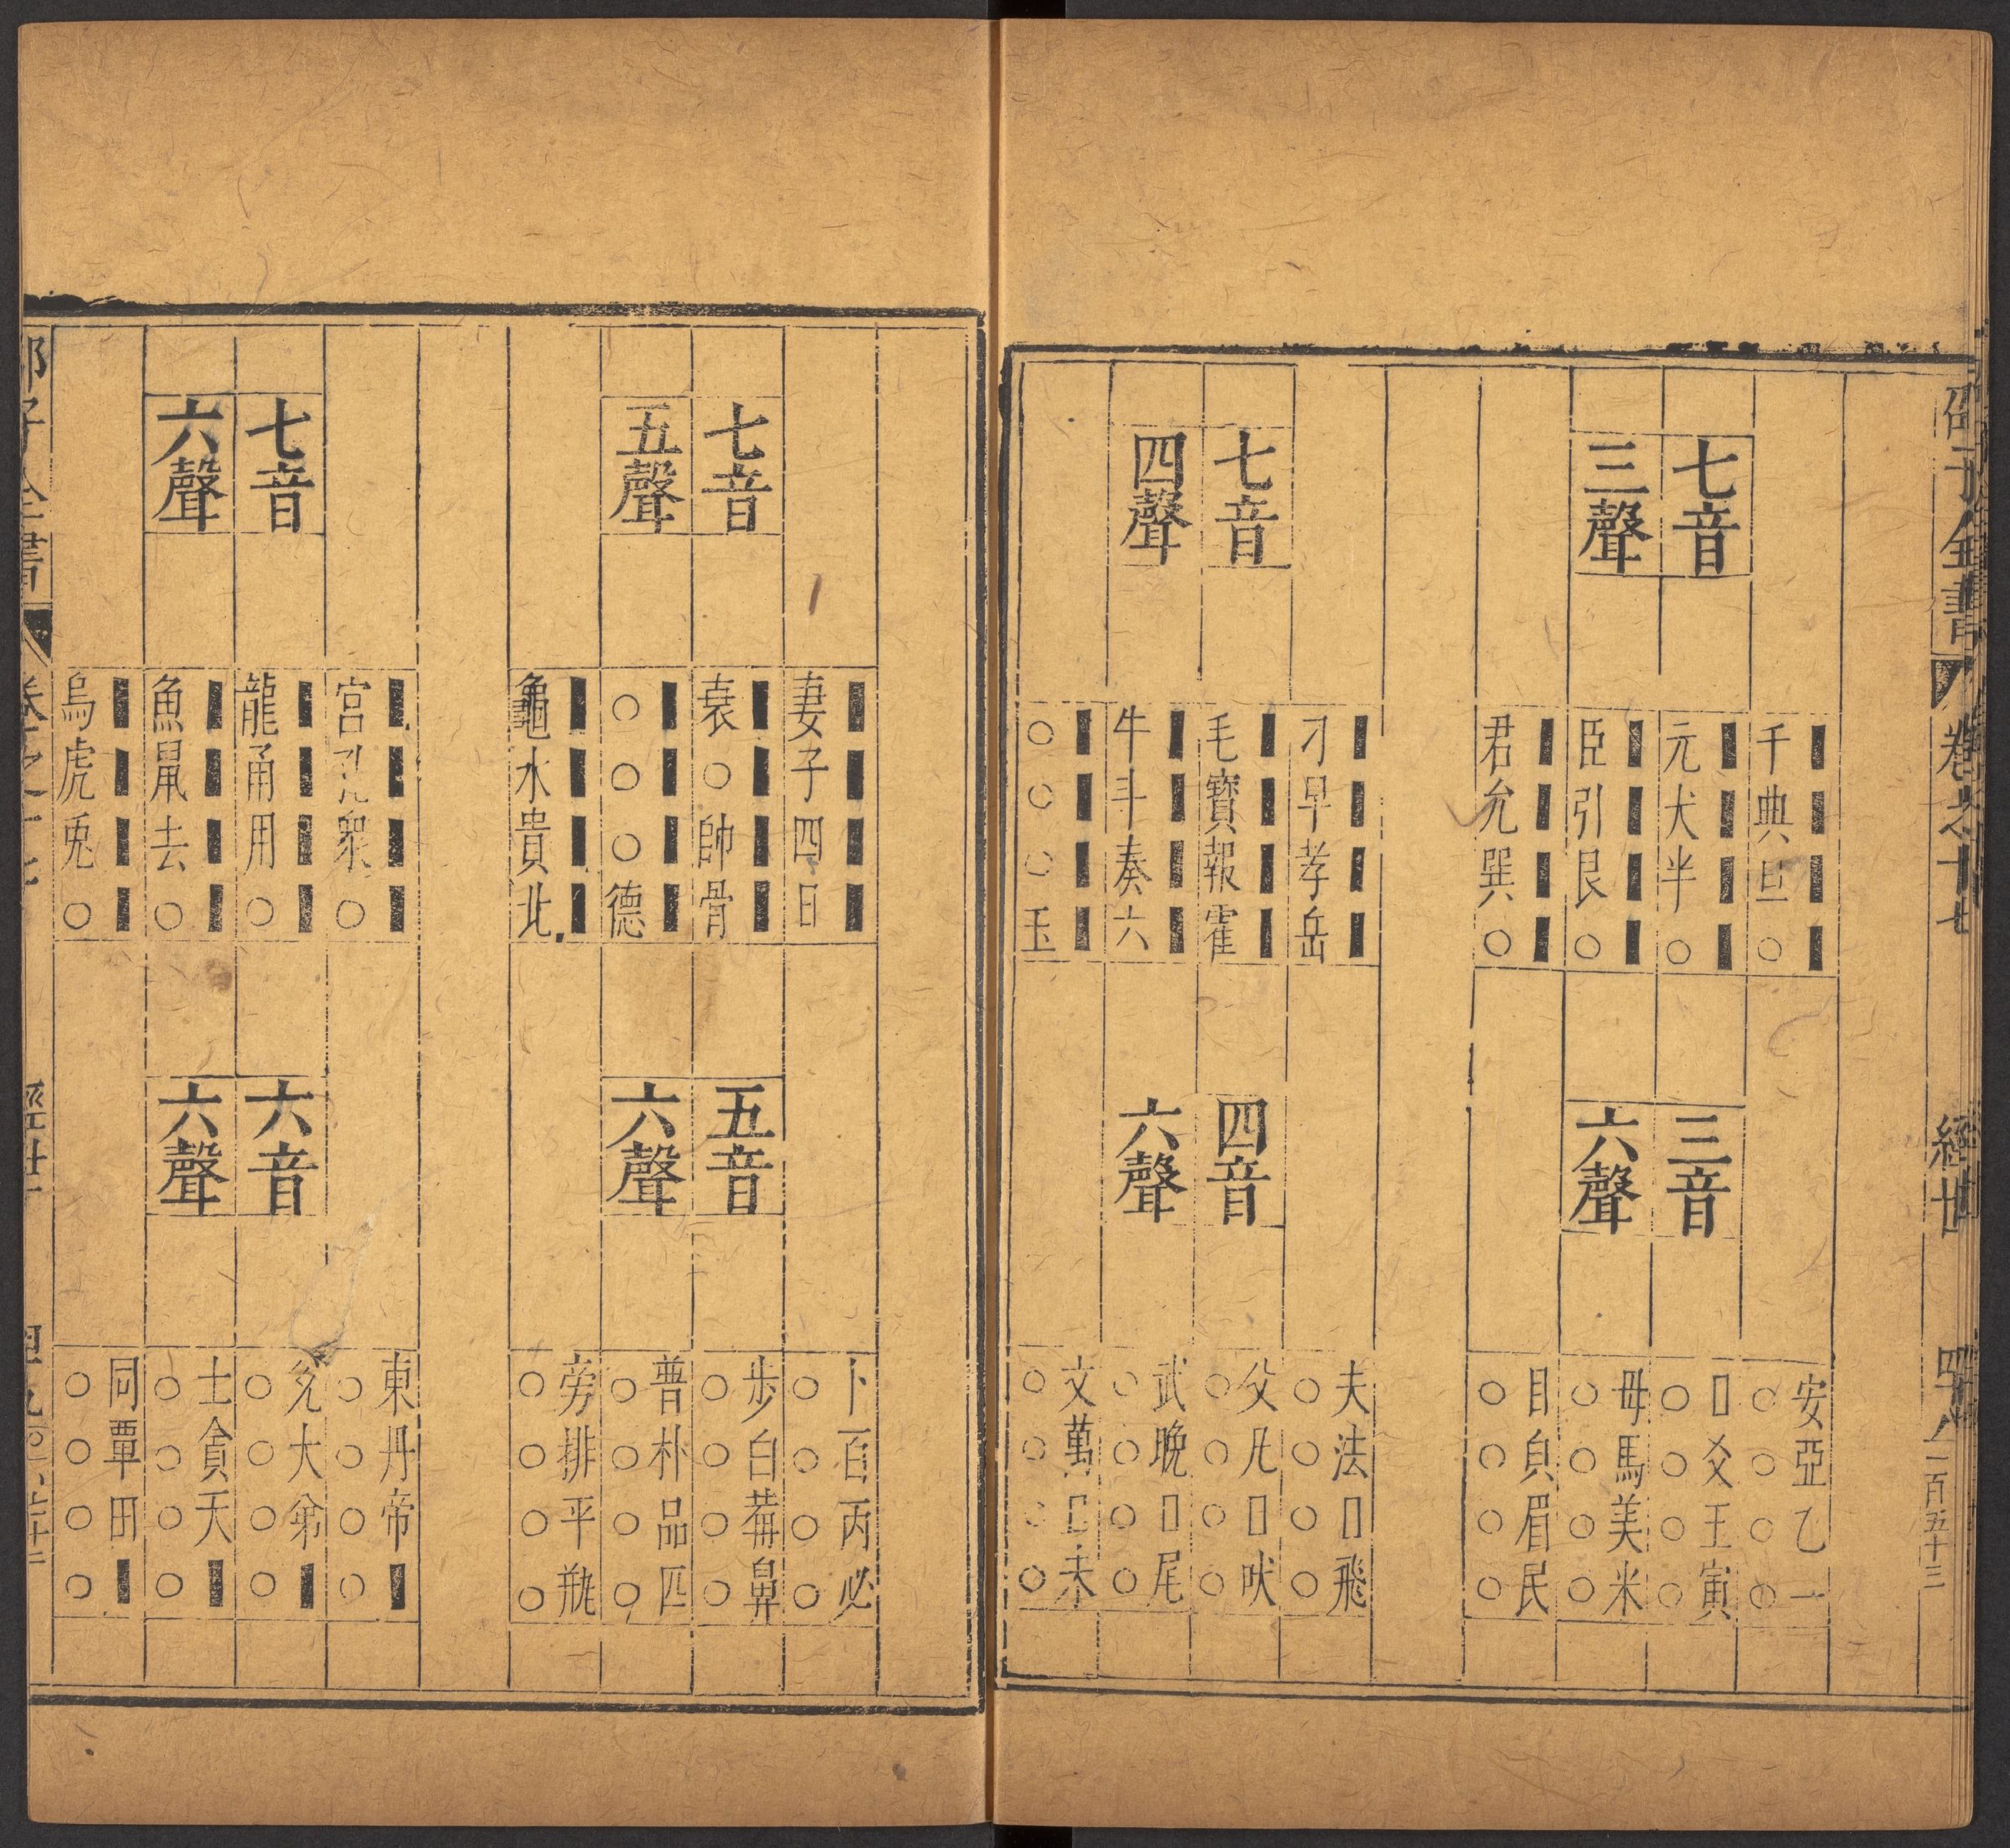 邵子全書 卷之十七 經世 一百五十三
七音
三聲
千典旦○
元犬半○
臣引艮○
君允巽○
三音
六聲
安亞乙一
○○○○
□爻王寅
○○○○
母馬美米
○○○○
目皃眉民
○○○○
七音
四聲
刁早孝岳
毛寳報霍
牛斗奏六
○○○玉
四音
六聲
夫法□飛
○○○○
父凡□吠
○○○○
武晚□尾
○○○○
文萬□未
○○○○
七音
五聲
妻子四日
衰○帥骨
○○○德
龜水貴北
五音
六聲
卜百丙必
○○○○
步白䒠鼻
○○○○
普朴品匹
○○○○
旁排平瓶
○○○○
七音
六聲
宮孔衆○
龍甬用○
魚鼠去○
烏虎兎○
六音
六聲
東丹帝■
○○○○
兌大弟■
○○○○
土貪天■
○○○○
同覃田■
○○○○